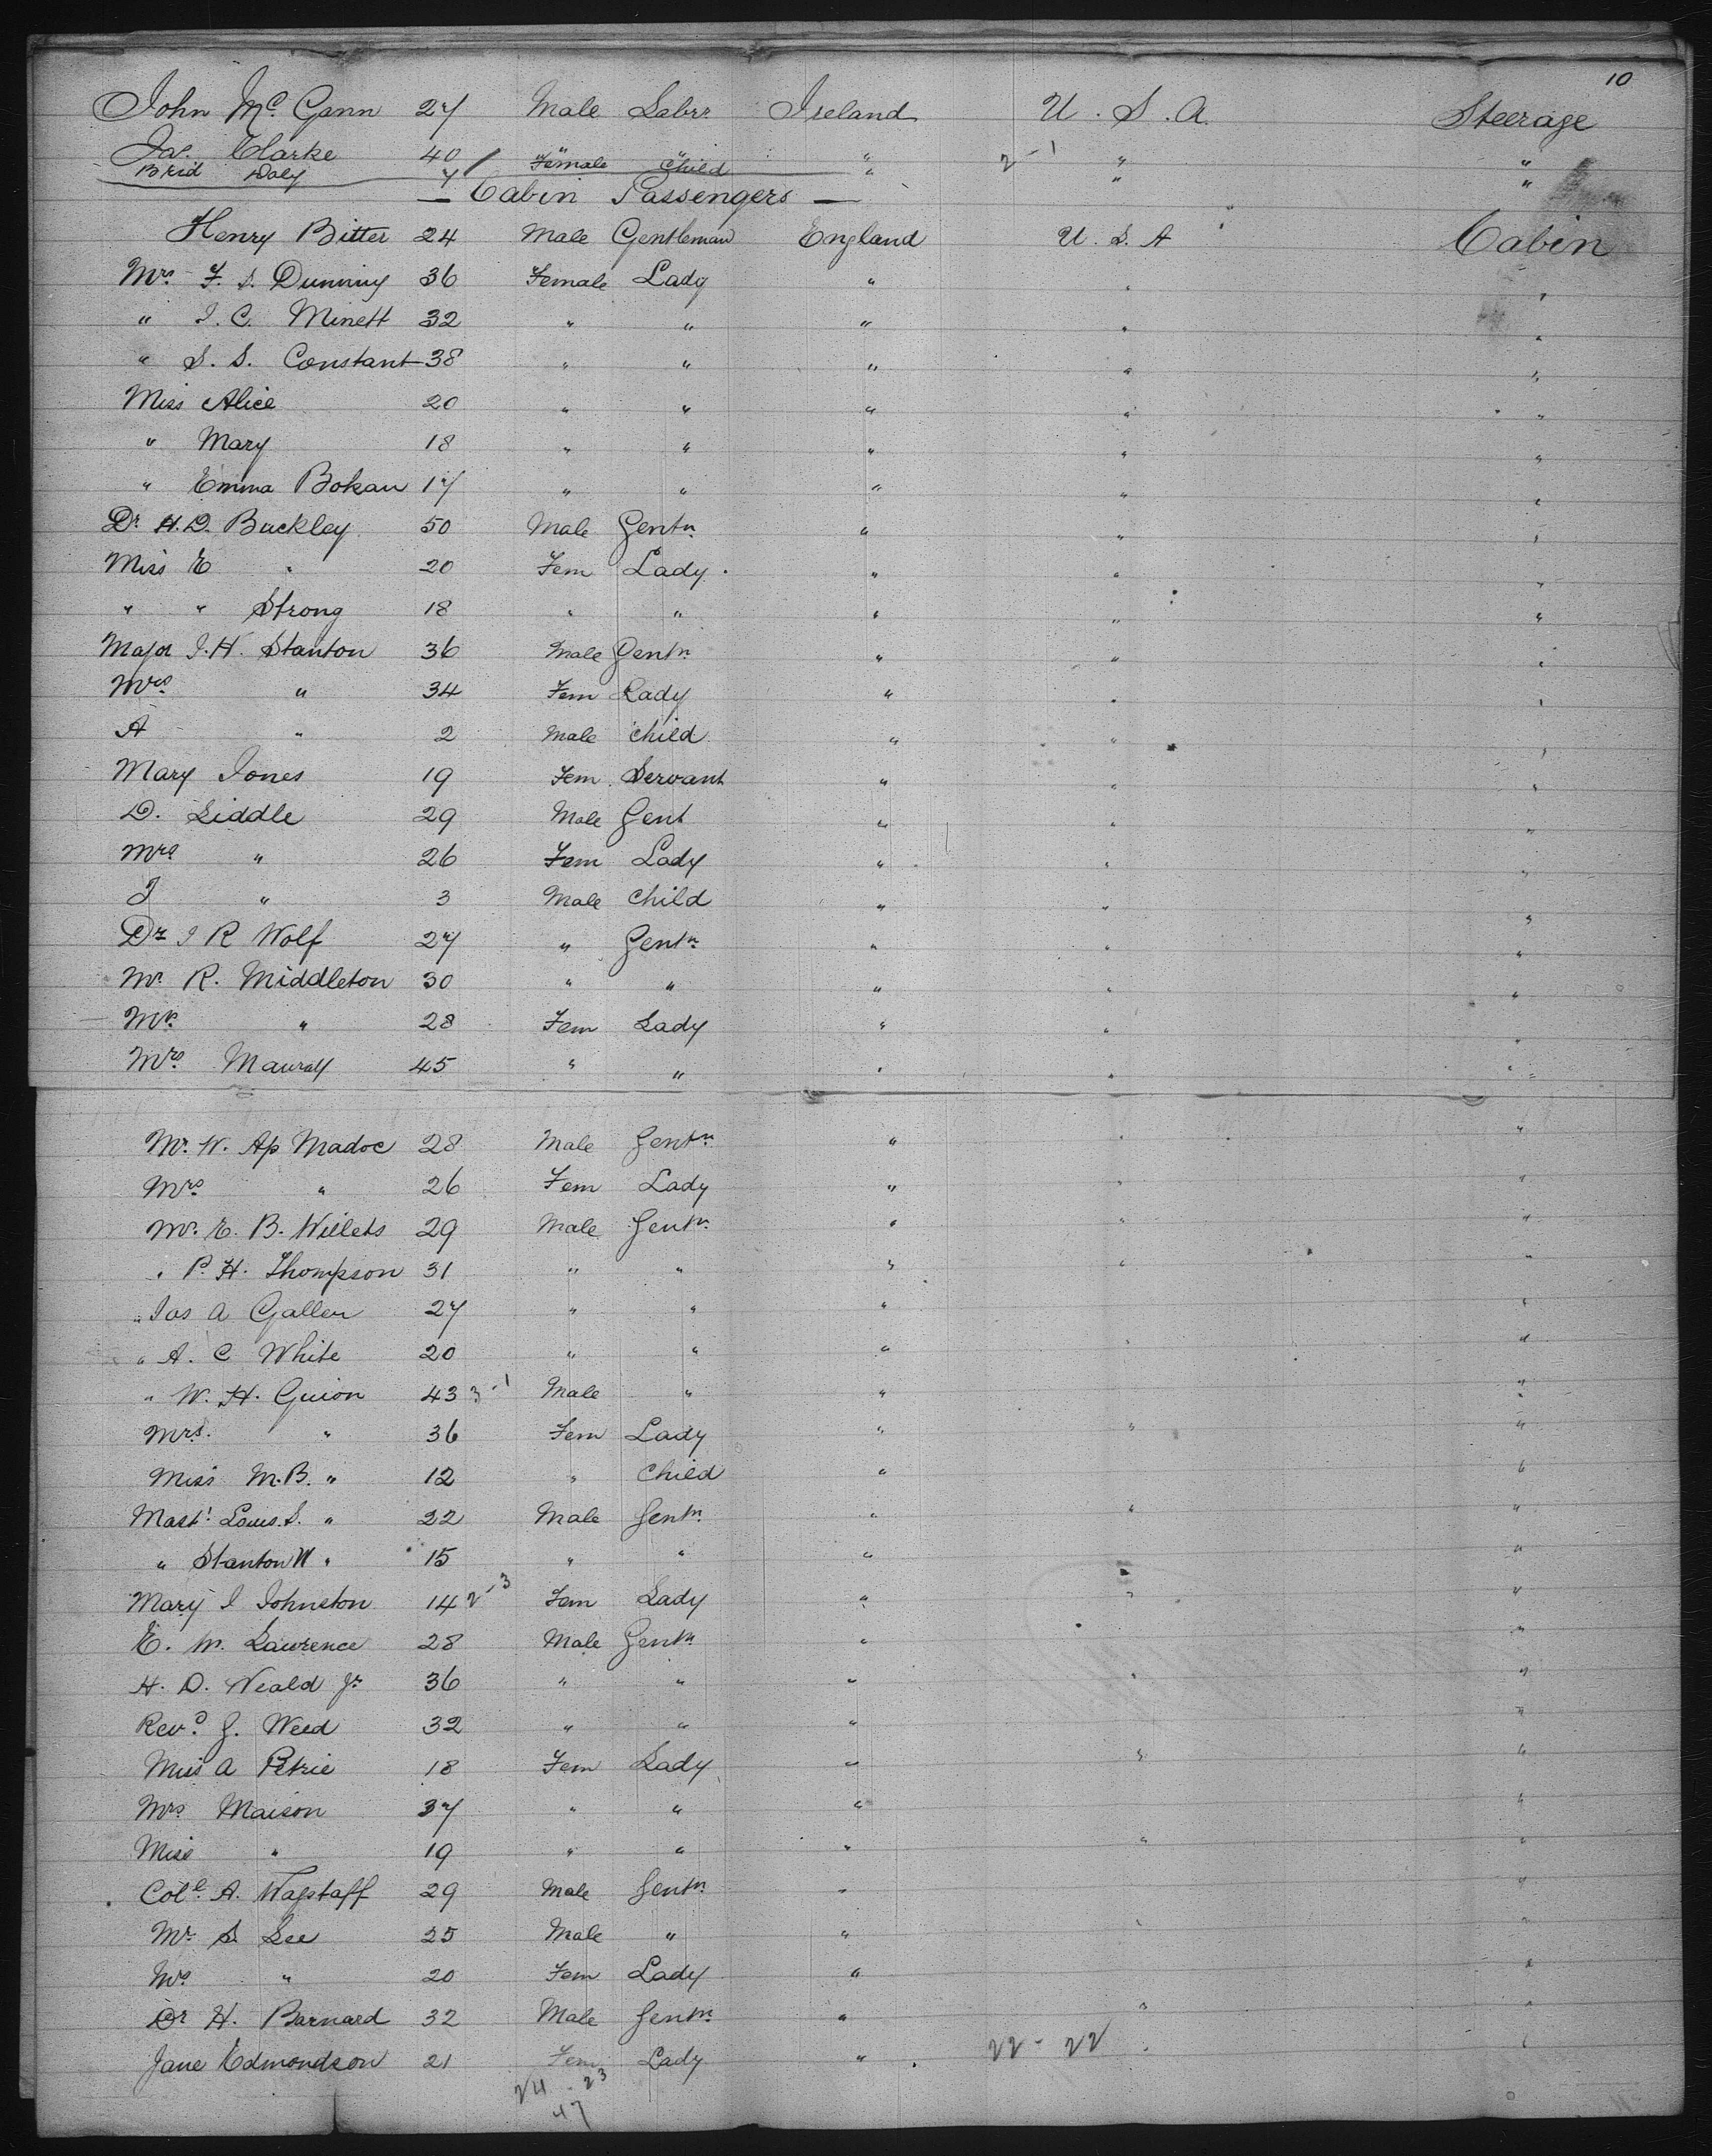 10
John Mc. Gann 27 Male Labrr Ireland U. S. A. Steerage
Jas. Clarke 40 " " " 2-1 " "
Brid Daly 7 Female Child " " "
— Cabin Passengers —
Henry Bitter 24 Male Gentleman England U. S. A Cabin
Mrs. F. S. Dunning 36 Female Lady " " "
" I. C. Minett 32 " " " " "
" S. S. Constant 38 " " " " "
Miss Alice 20 " " " " "
" Mary 18 " " " " "
" Emma Bokan 17 " " " " "
Dr. H. D. Buckley 50 Male Gentn. " " "
Miss E " 20 Fem Lady. " " "
" " Strong 18 " " " " "
Major I. H. Stanton 36 Male Gentn. " " "
Mrs. " 34 Fem Lady " " "
A " 2 Male Child " " "
Mary Jones 19 Fem. Servant " " "
D. Liddle 29 Male Gent " " "
Mrs " 26 Fem Lady " " "
J " 3 Male Child " " "
Dr I R Wolf 27 " Gentn. " " "
Mr. R. Middleton 30 " " " " "
Mrs. " 28 Fem Lady " " "
Mrs. 45 " " " " "
Mr. W. Ap Madoc 28 Male Gentn. " " "
Mrs. " 26 Fem Lady " " "
Mr. E. B. Willets 29 Male Gentn. " " "
" P. H. Thompson 31 " " " " "
" Jas A Gallen 27 " " " "
" A. C White 20 " " " " "
" W. H. Guion 43 3-1 Male " " "
Mrs. " 36 Fem Lady " " "
Miss M. B. " 12 " Child " "
Mastr. Louis. S. " 22 Male Gentn. " " "
" Stanton W " 15 " " " " "
Mary I Johnston 14 2-3 Fem Lady " " "
E. W. Lawrence 28 Male Gentn. " " "
H. D. Weald Jr 36 " " " " "
Revd. G. Weed 32 " " " "
Miss A Petrie 18 Fem Lady " " "
Mrs. Maison 37 " " " "
Miss " 19 " " " " "
Colo. A. Wagstaff 29 Male Gentn. " "
Mr. S. Lee 25 Male " " " "
Mrs " 20 Fem Lady " "
Dr H. Barnard 32 Male Gentn. " " "
Jane Edmondson 21 Fem Lady " 22-22 " "
24-23
47